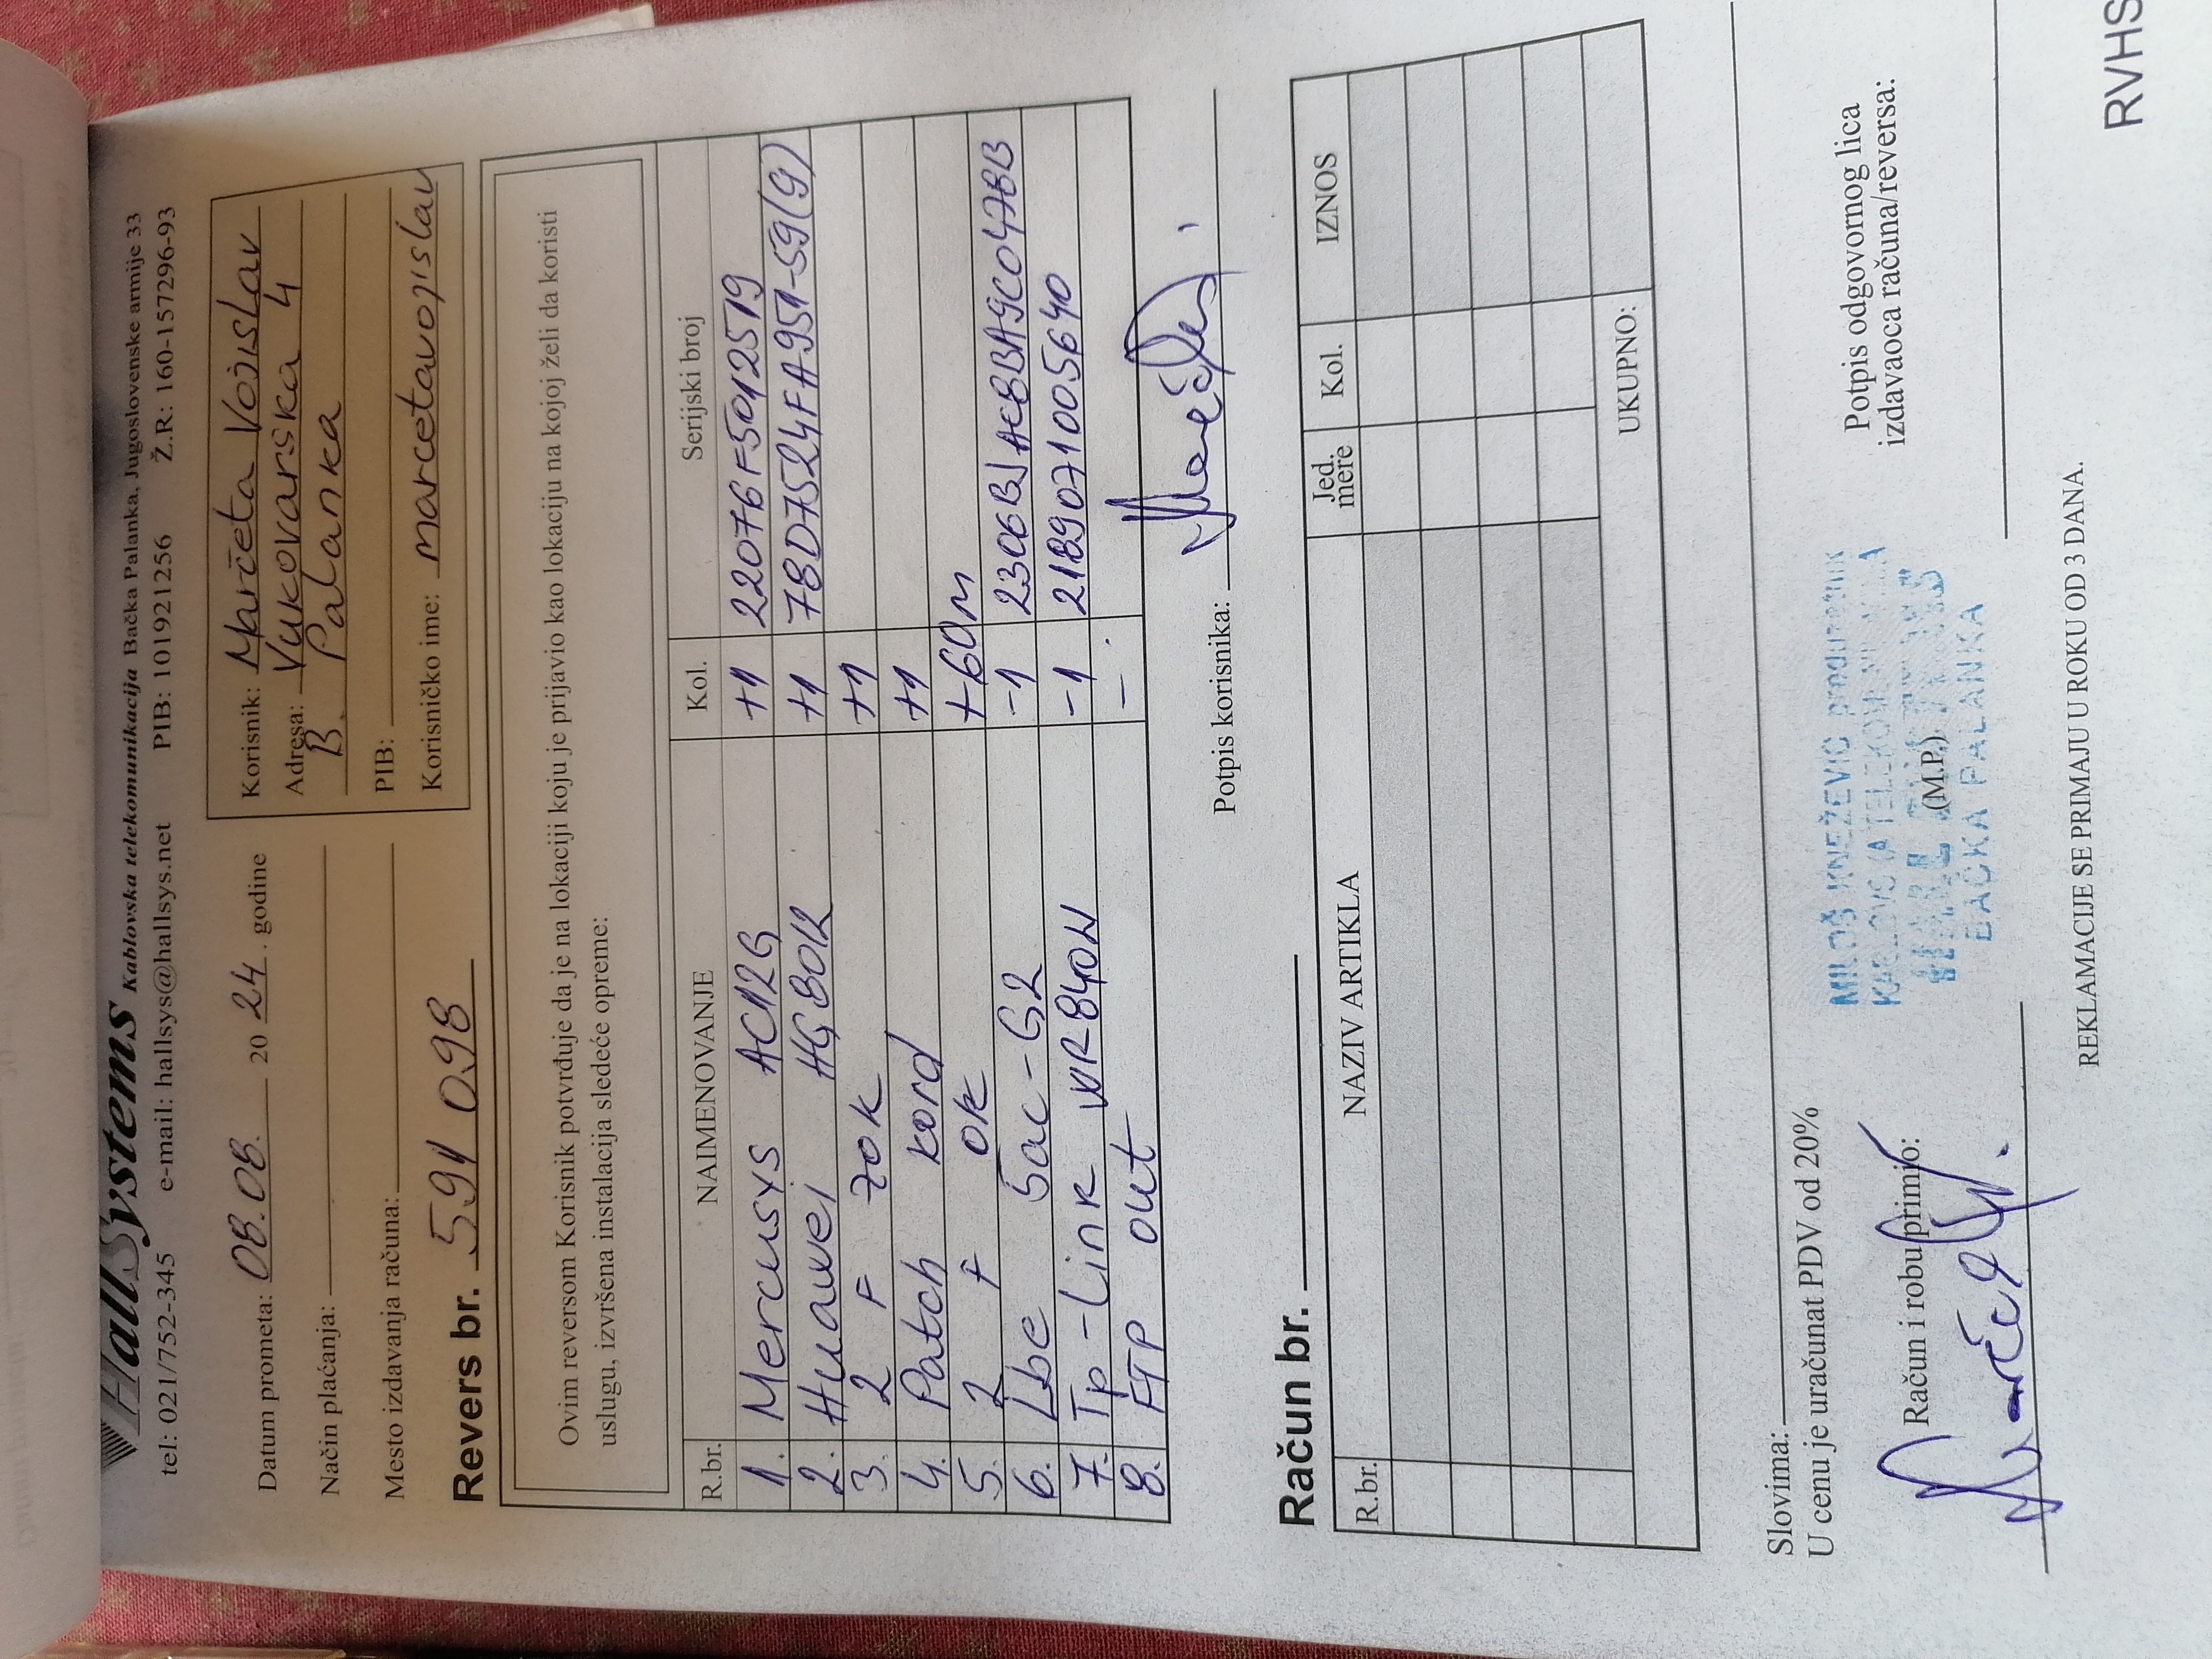 HallSystems Kablovska telekomunikacija Bačka Palanka, Jugoslovenske armije 33
tel: 021/752-345 e-mail: hallsys@hallsys.net PIB: 101921256 Ž.R: 160-157296-93
Datum prometa: 08.08. 20 24. godine
Način plaćanja:
Mesto izdavanja računa:
Revers br. 591 098
Korisnik: Marčeta Vojislav
Adresa: Vukovarska 4
B. Palanka
PIB:
Korisničko ime: marcetavojislav
Ovim reversom Korisnik potvrđuje da je na lokaciji koju je prijavio kao lokaciju na kojoj želi da koristi
uslugu, izvršena instalacija sledeće opreme:
R.br. NAIMENOVANJE Kol. Serijski broj
1. Mercusys AC12G +1 22076F5012519
2. Huawei HG8012 +1 78D7524FA951-59(9)
3. 2 F 70k +1
4. Patch kord +1
5. 2 F OK +60m
6. Lbe 5ac-G2 -1
7. Tp-Link WR840N -1 2189071005640
8. FTP out -
Potpis korisnika:
Račun br.
R.br. NAZIV ARTIKLA Jed. mere Kol. IZNOS
UKUPNO:
Slovima:
U cenu je uračunat PDV od 20%
Račun i robu primio:
MILOŠ KNEŽEVIĆ preduzetnik
(M.P.)
BAČKA PALANKA
Potpis odgovornog lica
izdavaoca računa/reversa:
REKLAMACIJE SE PRIMAJU U ROKU OD 3 DANA.
RVHS